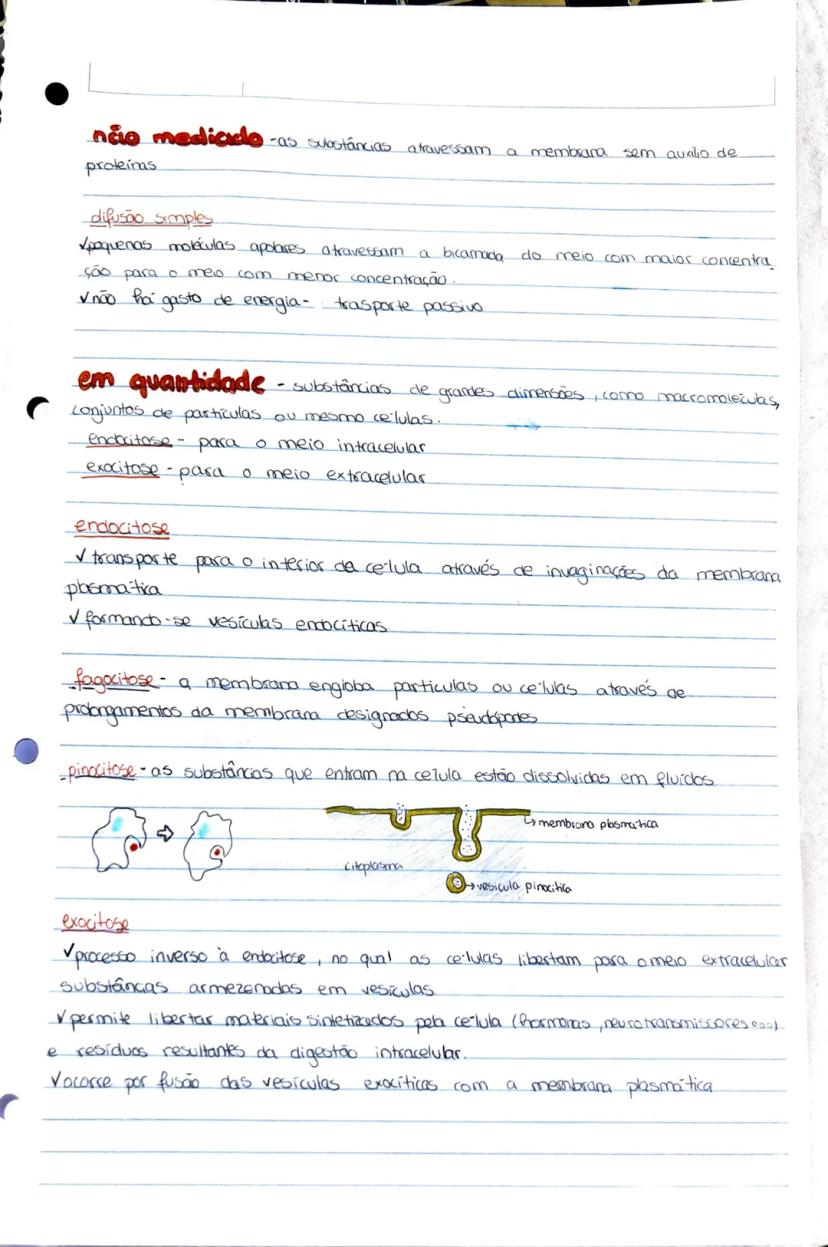 não mediado - as substâncias atravessam a membrana sem auxílio de
proteínas
difusão simples
✓pequenas moléculas apolares atravessam a bicamada do meio com maior concentra
ção para o meio com menor concentração.
✓não há gasto de energia - trasporte passivo
em quantidade - substâncias de grandes dimensões, como macromoléculas,
conjuntos de partículas ou mesmo células.
endocitose - para o meio intracelular
exocitose - para o meio extracelular
endocitose
✓transporte para o interior da célula através de invaginações da membrana
plasmática
✓formando-se vesículas endocíticas
fagocitose - a membrana engloba partículas ou células através de
prolongamentos da membrana designados pseudópodes
pinocitose - as substâncias que entram na célula estão dissolvidas em fluídos
membrana plasmática
citoplasma
vesícula pinocítica
exocitose
✓processo inverso à endocitose, no qual as células libertam para o meio extracelular
substâncias armezenadas em vesículas
✓permite libertar materiais sintetizados pela célula (hormonas, neurotransmissores...)
e resíduos resultantes da digestão intracelular.
✓ocorre por fusão das vesículas exocíticas com a membrana plasmática